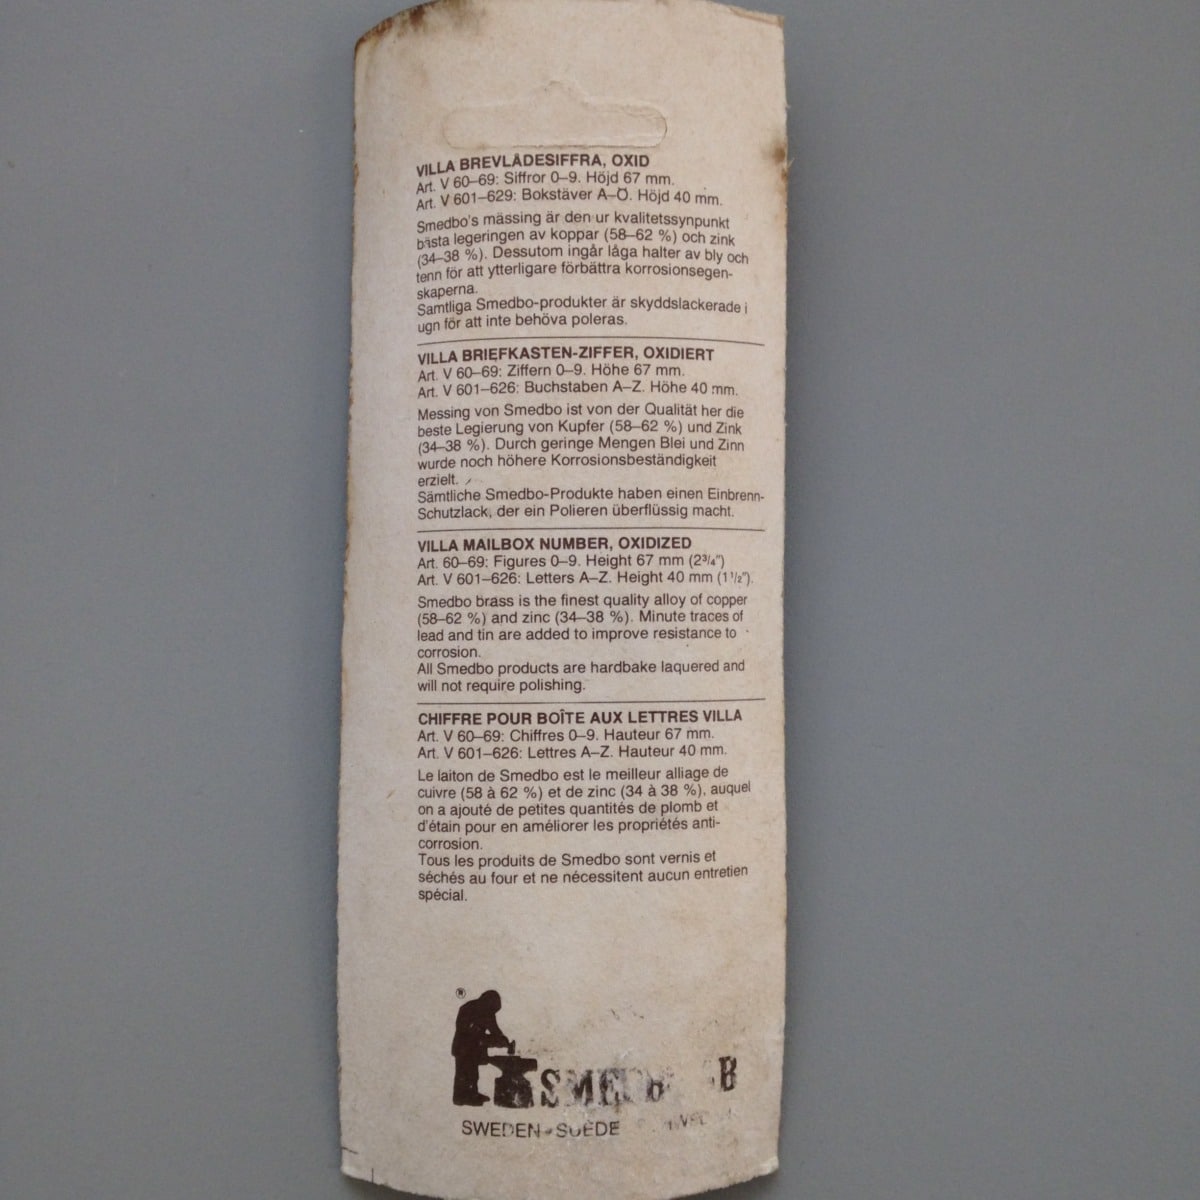 VILLA BREVLÅDESIFFRA, OXID
Art. V 60–69: Siffror 0–9. Höjd 67 mm.
Art. V 601–629: Bokstäver A–Ö. Höjd 40 mm.
Smedbo's mässing är den ur kvalitetssynpunkt
bästa legeringen av koppar (58–62 %) och zink
(34–38 %). Dessutom ingår låga halter av bly och
tenn för att ytterligare förbättra korrosionsegen-
skaperna.
Samtliga Smedbo-produkter är skyddslackerade i
ugn för att inte behöva poleras.
VILLA BRIEFKASTEN-ZIFFER, OXIDIERT
Art. V 60–69: Ziffern 0–9. Höhe 67 mm.
Art. V 601–626: Buchstaben A–Z. Höhe 40 mm.
Messing von Smedbo ist von der Qualität her die
beste Legierung von Kupfer (58–62 %) und Zink
(34–38 %). Durch geringe Mengen Blei und Zinn
wurde noch höhere Korrosionsbeständigkeit
erzielt.
Sämtliche Smedbo-Produkte haben einen Einbrenn-
Schutzlack, der ein Polieren überflüssig macht.
VILLA MAILBOX NUMBER, OXIDIZED
Art. 60–69: Figures 0–9. Height 67 mm (2 3/4")
Art. V 601–626: Letters A–Z. Height 40 mm (1 1/2").
Smedbo brass is the finest quality alloy of copper
(58–62 %) and zinc (34–38 %). Minute traces of
lead and tin are added to improve resistance to
corrosion.
All Smedbo products are hardbake laquered and
will not require polishing.
CHIFFRE POUR BOÎTE AUX LETTRES VILLA
Art. V 60–69: Chiffres 0–9. Hauteur 67 mm.
Art. V 601–626: Lettres A–Z. Hauteur 40 mm.
Le laiton de Smedbo est le meilleur alliage de
cuivre (58 à 62 %) et de zinc (34 à 38 %), auquel
on a ajouté de petites quantités de plomb et
d'étain pour en améliorer les propriétés anti-
corrosion.
Tous les produits de Smedbo sont vernis et
séchés au four et ne nécessitent aucun entretien
spécial.
®
SWEDEN-SUÈDE